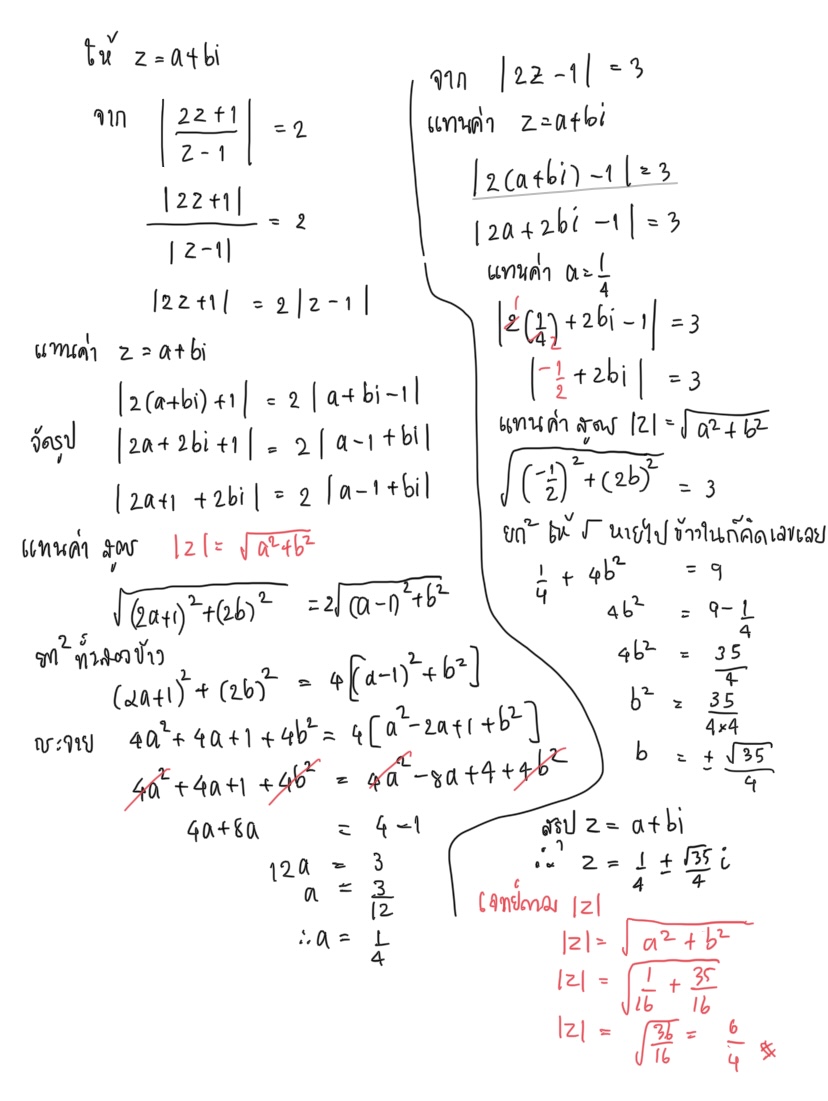 ให้ z = a+bi
จาก |(2z+1)/(z-1)| = 2
|2z+1|/|z-1| = 2
|2z+1| = 2|z-1|
แทนค่า z = a+bi
|2(a+bi)+1| = 2|a+bi-1|
จัดรูป |2a+2bi+1| = 2|a-1+bi|
|2a+1+2bi| = 2|a-1+bi|
แทนค่า สูตร |z| = √(a²+b²)
√((2a+1)²+(2b)²) = 2√((a-1)²+b²)
ยก² ทั้งสองข้าง
(2a+1)²+(2b)² = 4[(a-1)²+b²]
กระจาย 4a²+4a+1+4b² = 4[a²-2a+1+b²]
4a²+4a+1+4b² = 4a²-8a+4+4b²
4a+8a = 4-1
12a = 3
a = 3/12
∴a = 1/4
จาก |2z-1| = 3
แทนค่า z = a+bi
|2(a+bi)-1| = 3
|2a+2bi-1| = 3
แทนค่า a = 1/4
|2(1/4)+2bi-1| = 3
1 2
|-1/2+2bi| = 3
แทนค่า สูตร |z| = √(a²+b²)
√((-1/2)²+(2b)²) = 3
ยก² ให้ √ หายไป ข้างในก็คิดเลขเลย
1/4 + 4b² = 9
4b² = 9-1/4
4b² = 35/4
b² = 35/(4×4)
b = ±√35/4
สรุป z = a+bi
z = 1/4 ± √35/4 i
โจทย์ถาม |z|
|z| = √(a²+b²)
|z| = √(1/16 + 35/16)
|z| = √(36/16) = 6/4